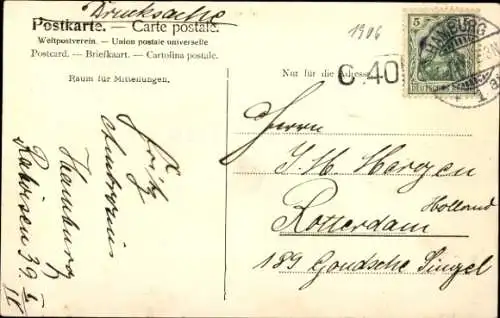 Drucksache
Postkarte. — Carte postale.
Weltpostverein. — Union postale universelle
Postcard. — Briefkaart. — Cartolina postale.
Raum für Mitteilungen.
Fritz
Hamburg
39 I
II
1906
Nur für die Adresse
C. 40
5
Deutsches Reich
HAMBURG
1
Herrn
J. H. Hergen
Rotterdam
Holland
189 Goudsche Singel